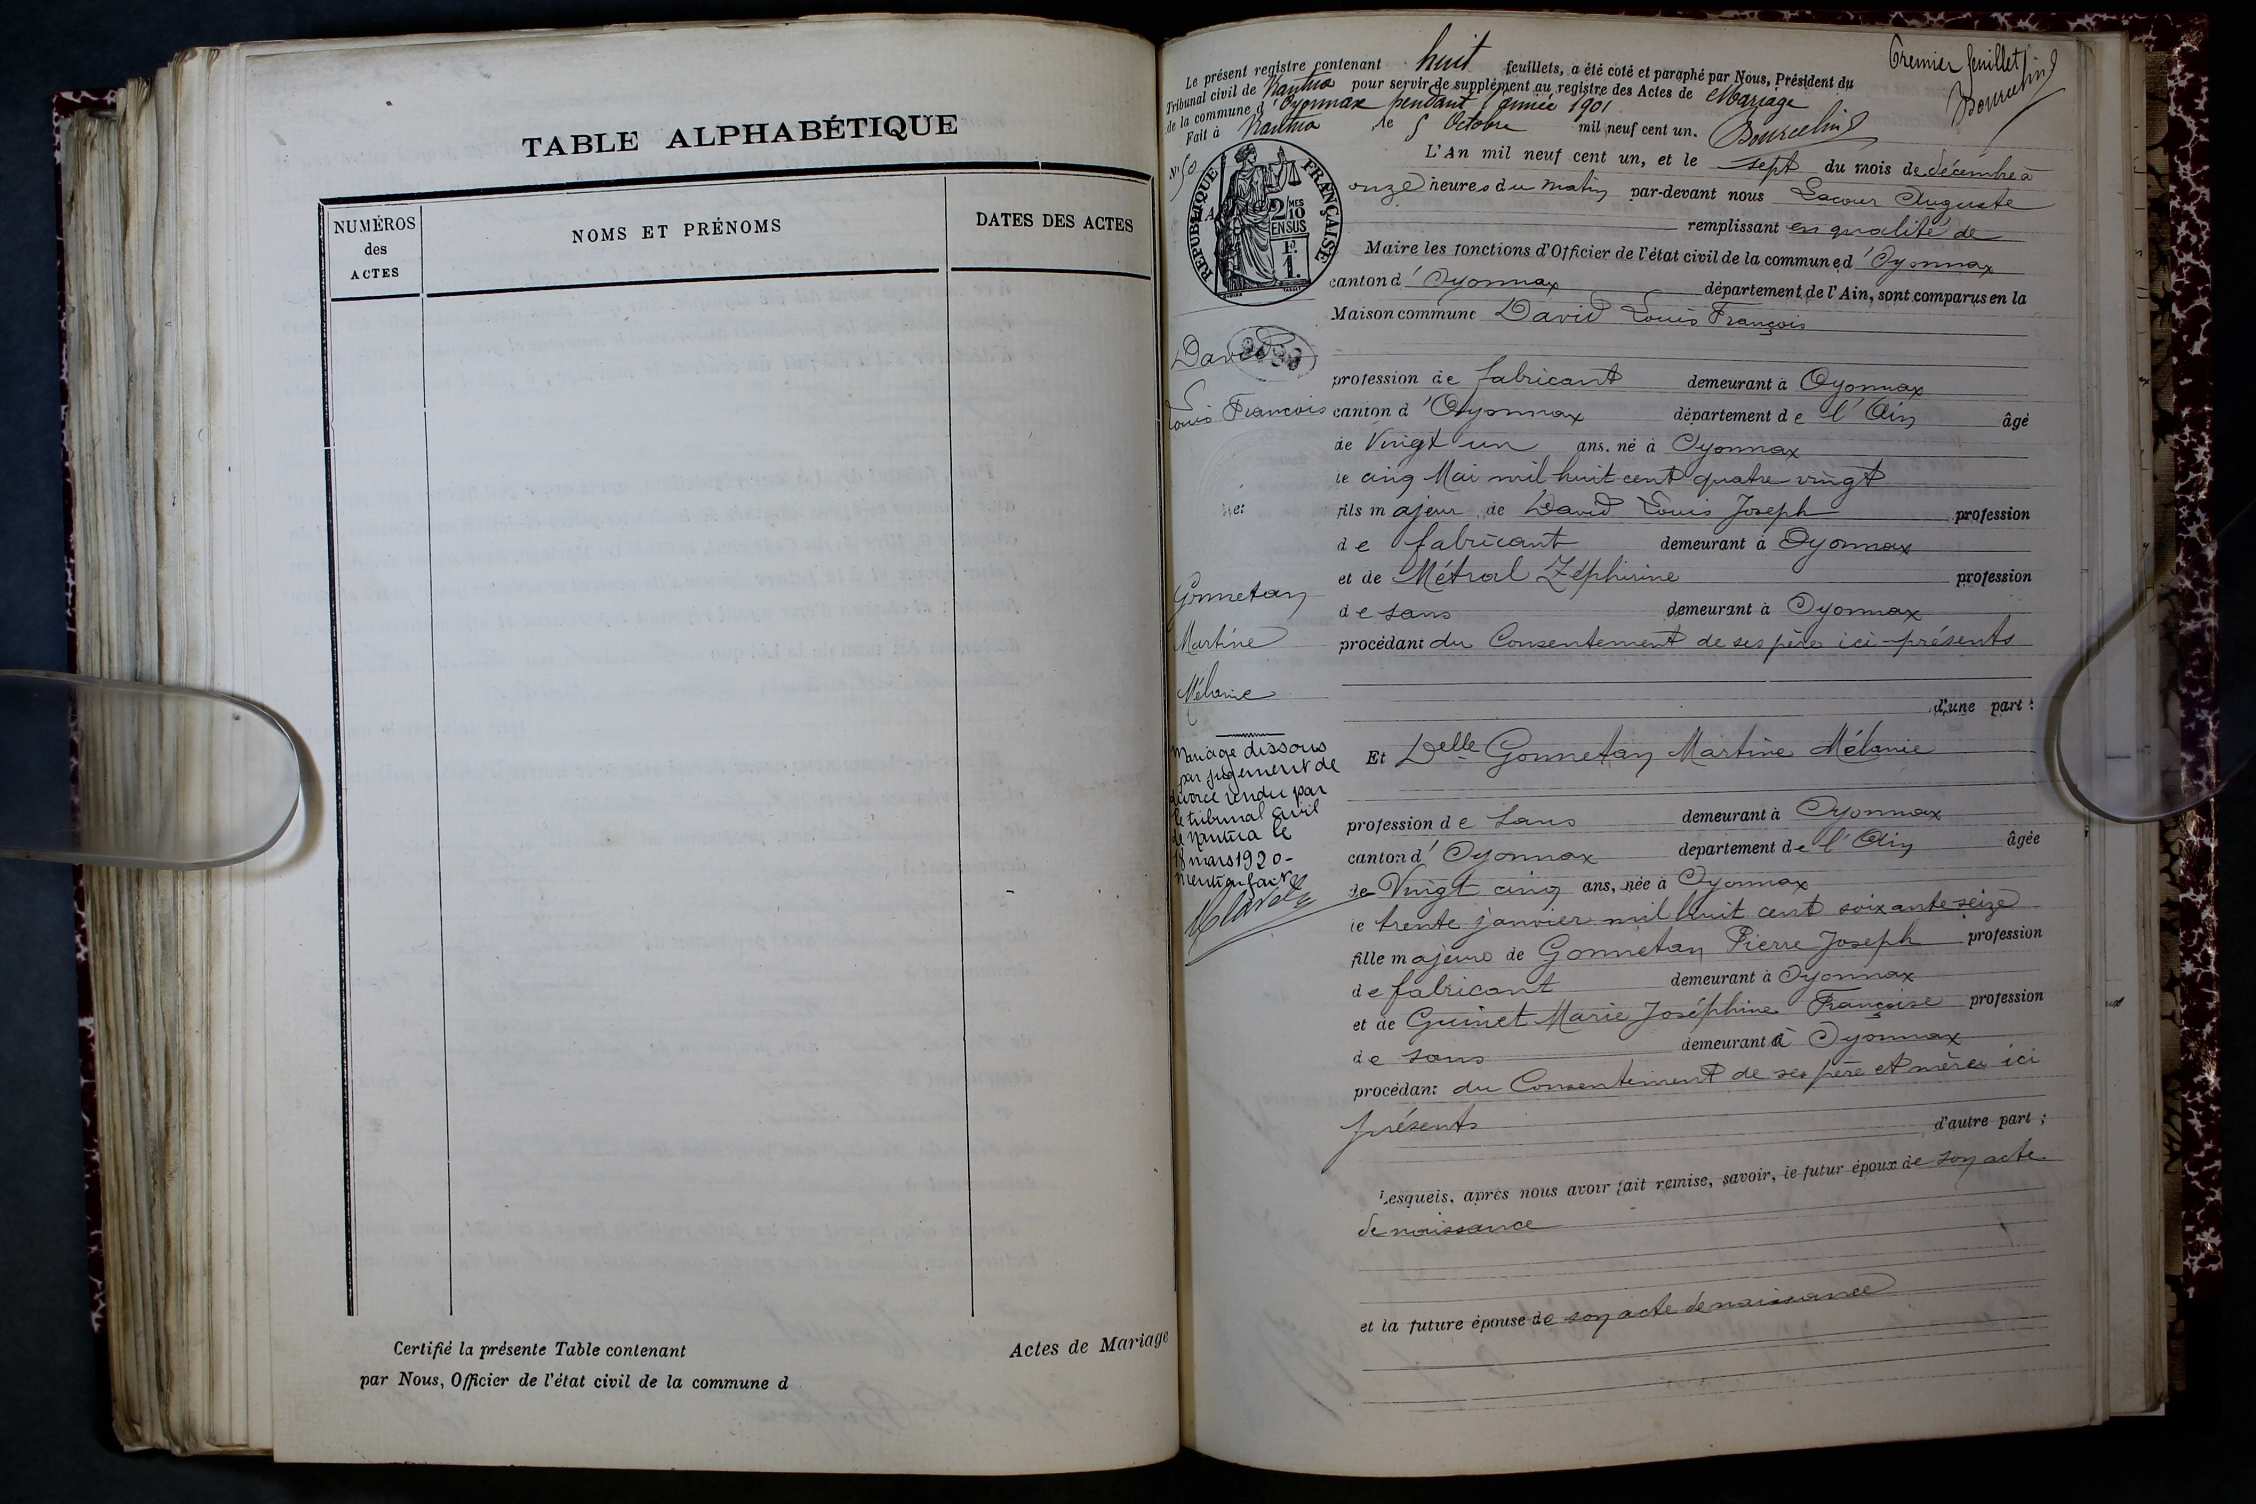 TABLE ALPHABÉTIQUE
NUMÉROS
des
ACTES
NOMS ET PRÉNOMS
DATES DES ACTES
Certifié la présente Table contenant
Actes de Mariage
par Nous, Officier de l'état civil de la commune d
Premier feuillet
Le présent registre contenant huit feuillets, a été coté et paraphé par Nous, Président du
Tribunal civil de Nantua pour servir de supplément au registre des Actes de Mariage
de la commune d'Oyonnax pendant l'année 1901
Fait à Nantua le 5 Octobre mil neuf cent un.
N° 50
RÉPUBLIQUE FRANÇAISE
2 MES
10
EN SUS
F.
1.
L'An mil neuf cent un, et le sept du mois de décembre à
onze heures du matin par-devant nous Lacour Auguste
remplissant en qualité de
Maire les fonctions d'Officier de l'état civil de la commune d'Oyonnax
canton d'Oyonnax département de l'Ain, sont comparus en la
Maison commune David Louis François
David
Louis François
profession de fabricant demeurant à Oyonnax
canton d'Oyonnax département de l'Ain âgé
de Vingt un ans, né à Oyonnax
le cinq Mai mil huit cent quatre vingt
fils majeur de David Louis Joseph profession
de fabricant demeurant à Oyonnax
et de Métral Zéphirine profession
de sans demeurant à Oyonnax
procédant du Consentement de ses père ici-présents
d'une part :
Gonnetan
Martine
Mélanie
Mariage dissous
par jugement de
divorce rendu par
le tribunal civil
de Nantua le
18 mars 1920 -
Et Delle Gonnetan Martine Mélanie
profession de sans demeurant à Oyonnax
canton d'Oyonnax département de l'Ain âgée
de Vingt cinq ans, née à Oyonnax
le trente janvier mil huit cent soixante seize
fille majeure de Gonnetan Pierre Joseph profession
de fabricant demeurant à Oyonnax
et de Guinet Marie Joséphine Françoise profession
de sans demeurant à Oyonnax
procédant du Consentement de ses père et mère ici
présents d'autre part ;
Lesquels, après nous avoir fait remise, savoir, le futur époux de son acte
de naissance
et la future épouse de son acte de naissance